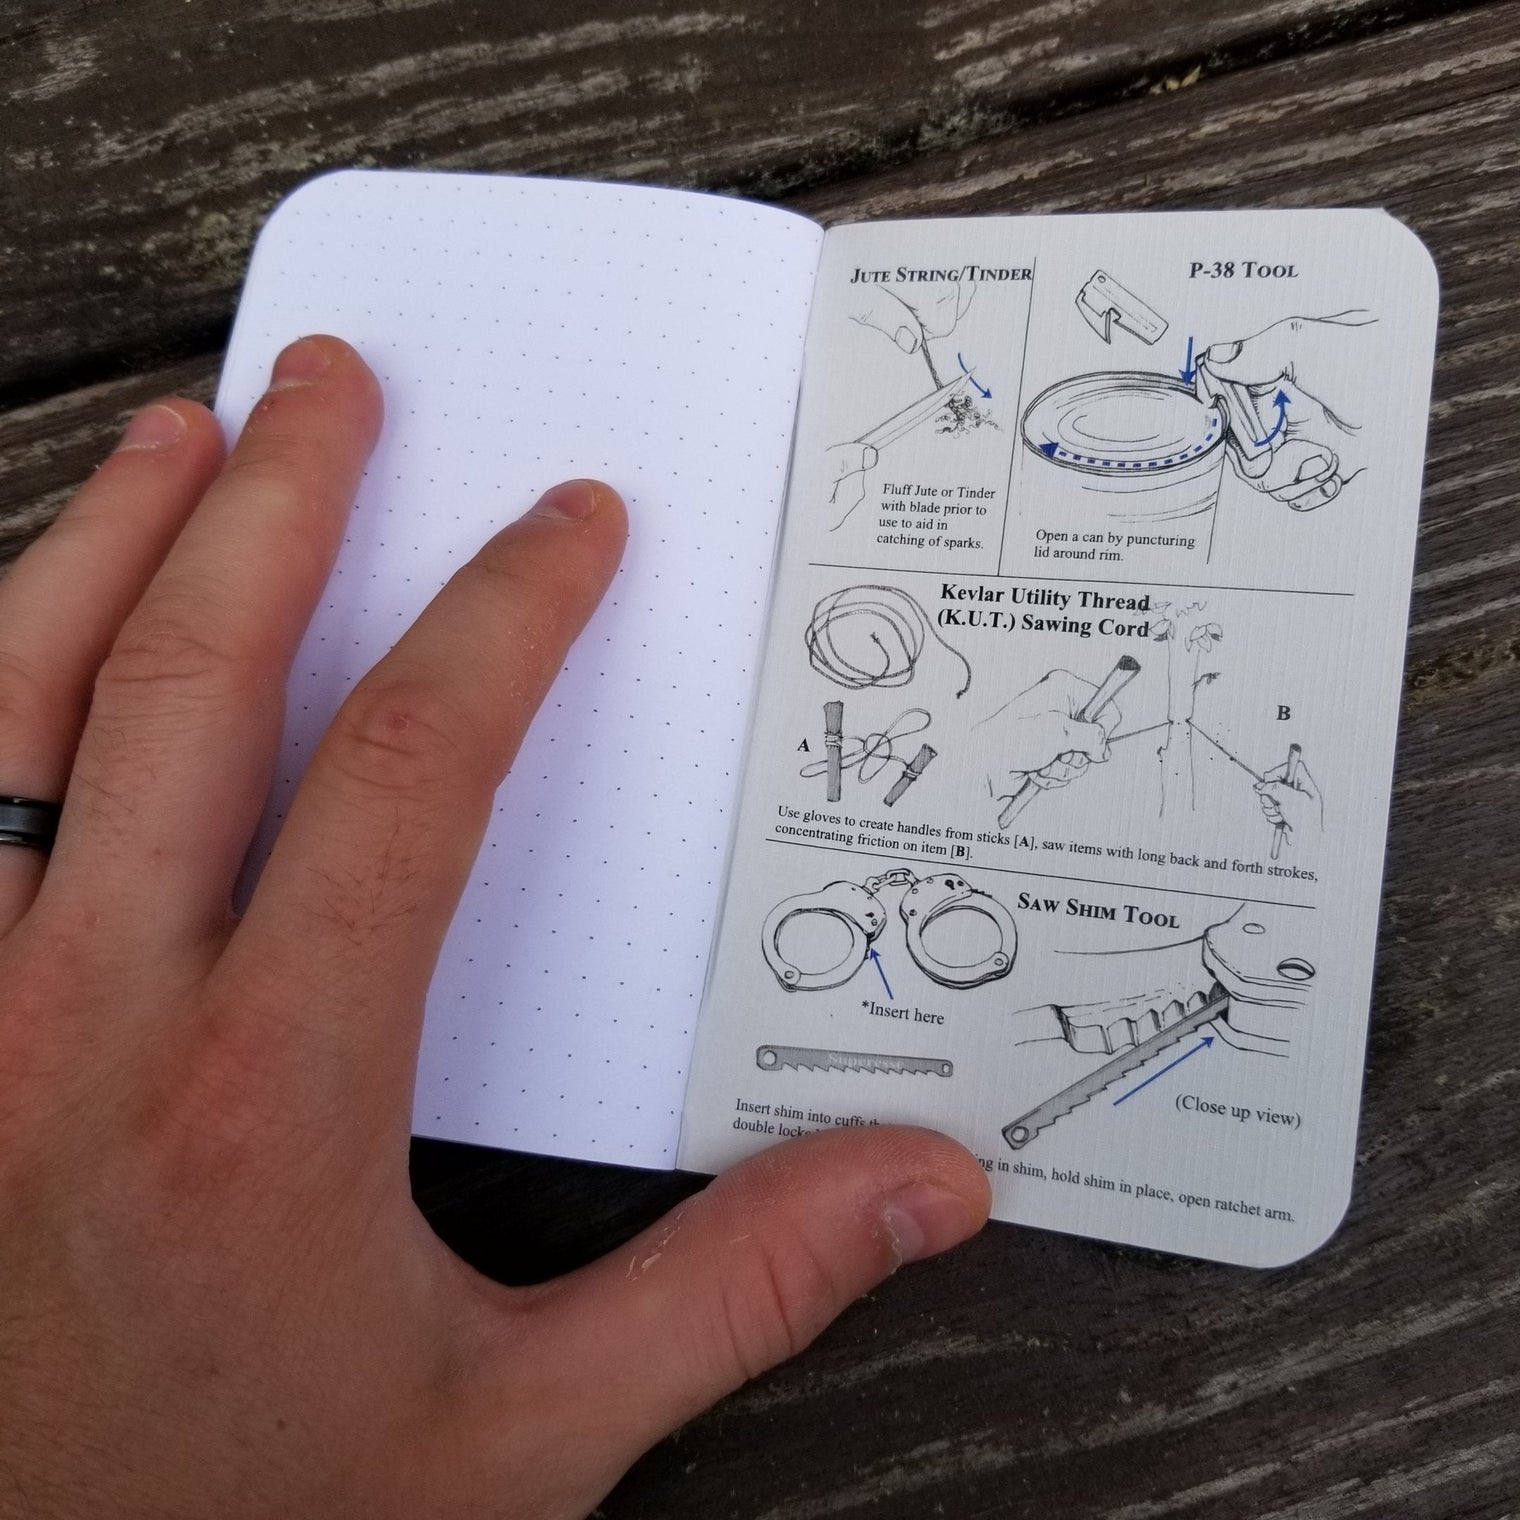 JUTE STRING/TINDER
Fluff Jute or Tinder
with blade prior to
use to aid in
catching of sparks.
P-38 TOOL
Open a can by puncturing
lid around rim.
Kevlar Utility Thread
(K.U.T.) Sawing Cord
A
B
Use gloves to create handles from sticks [A], saw items with long back and forth strokes,
concentrating friction on item [B].
SAW SHIM TOOL
*Insert here
(Close up view)
Insert shim into cuffs
double locks
in shim, hold shim in place, open ratchet arm.